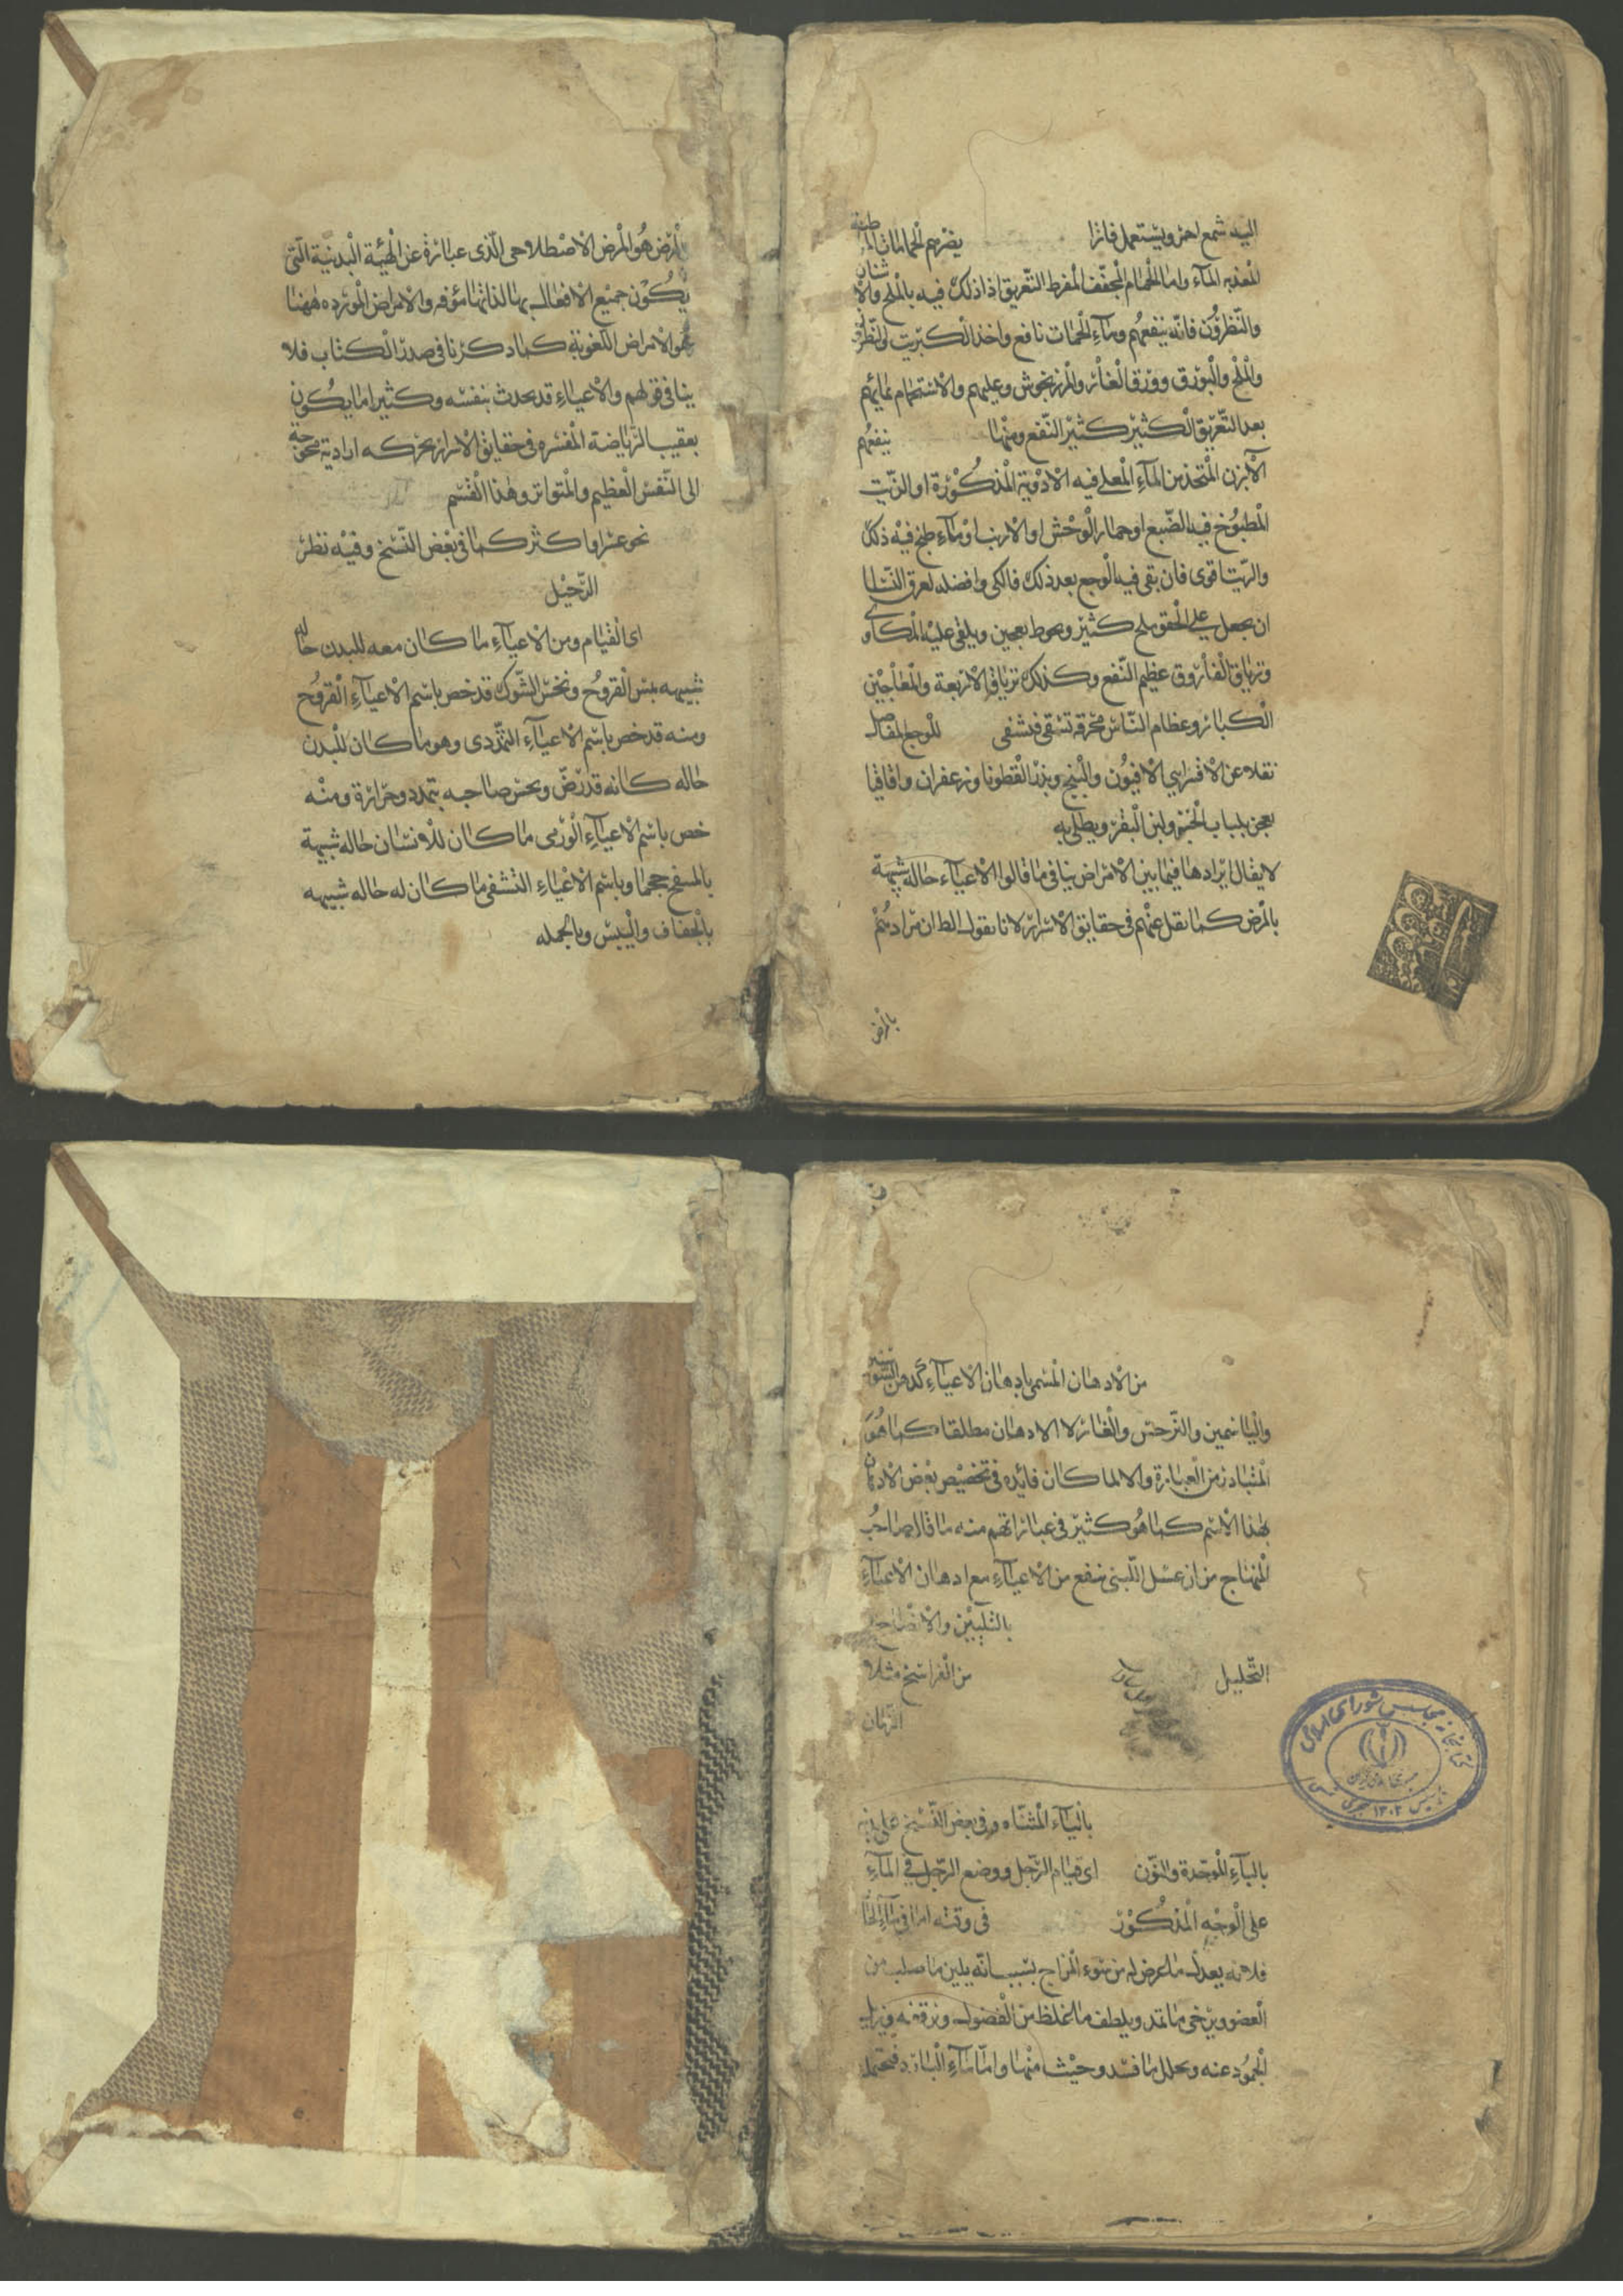 اليه شمع احمر ويستعمل فاترا يضرهم الحمامات الرطبة
العذبة الماء واما الحمام المجفف المفرط التعريق اذا دلك فيه بالملح والاشنان
والنطرون فانه ينفعهم وماء الحمات نافع واخذ الكبريت والنطرون
والملح والبورق وورق الغار والمرزنجوش وعليهم والاستحمام بمائهم
بعد التعريق الكثير كثير النفع ومنها ينفعهم
الآبزن المتخذ من الماء المغلى فيه الادوية المذكورة او الزيت
المطبوخ فيه الضبع او حمار الوحش او الارنب او ماء طبخ فيه ذلك
والزيت اقوى فان بقى فيه الوجع بعد ذلك فالكى وافضله لعرق النسا
ان يجعل على الحقو ملح كثير ويحوط بعجين ويلقى عليه المكاوى
وترياق الفاروق عظيم النفع وكذلك ترياق الاربعة والمعاجين
الكبار وعظام الناس محرقة تسقى فتشفى للوجع المفاصل
نقلا عن الاقسرايى الافيون والبنج وبذر القطونا وزعفران واقاقيا
يعجن بلباب الخبز ولبن البقر ويطلى به
لا يقال ايرادها فيما بين الامراض ينافى ما قالوا الاعياء حالة شبيهة
بالمرض كما نقل عنهم فى حقايق الاسرار لانا نقول الظ ان مرادهم
بالمرض
بالمرض هو المرض الاصطلاحى الذى عبارة عن الهيئة البدنية التى
يكون جميع الافعال بها لذاتها مؤفه والامراض الموردة ههنا
هو الامراض اللغوية كما ذكرنا فى صدر الكتاب فلا
ينافى قولهم والاعياء قد يحدث بنفسه وكثيرا ما يكون
بعقيب الرياضة المفسره فى حقايق الاسرار بحركه ارادية محوجة
الى النفس العظيم والمتواتر وهذا القسم
نحو عشر او اكثر كما فى بعض النسخ وفيه نظر
الرحيل
اى القيام ومن الاعياء ما كان معه للبدن حالة
شبيهه بمس القروح ونخس الشوك قد خص باسم الاعياء القروحى
ومنه قد خص باسم الاعياء التمددى وهو ما كان للبدن
حاله كانه قد رض ويحس صاحبه بتمدد وحرارة ومنه
خص باسم الاعياء الورمى ما كان للانسان حاله شبيهة
بالمنتفخ حجما وباسم الاعياء القشفى ما كان له حاله شبيهه
بالجفاف واليبس وبالجمله
من الادهان المسمى بادهان الاعياء كدهن السوسن
والياسمين والنرجس والغار لا الادهان مطلقا كما هو
المتبادر من العبارة والا لما كان فائده فى تخصيص بعض الادهان
بهذا الاسم كما هو كثير فى عباراتهم منه ما قال صاحب
المنهاج من ان عسل اللبنى ينفع من الاعياء مع ادهان الاعياء
بالتليين والانضاج
التحليل من الفراسخ مثلا
الزمان
بالياء المثناه وفى بعض النسخ على
بالباء الموحدة والنون اى قيام الرجل ووضع الرجل فى الماء
على الوجه المذكور فى وقته اما فى ماء الحار
فلانه يعدل ما عرض له من سوء المزاج بسبب انه يلين ما صلب من
العضو ويرخى ما تمدد ويلطف ما غلظ من الفضول ويرققه ويزيل
الجمود عنه ويحلل ما فسد وخبث منها واما ماء البارد فيحتمل
كتابخانه مجلس شورای اسلامی
جمهوری اسلامی ایران
تأسیس ۱۳۰۲ هجری شمسی